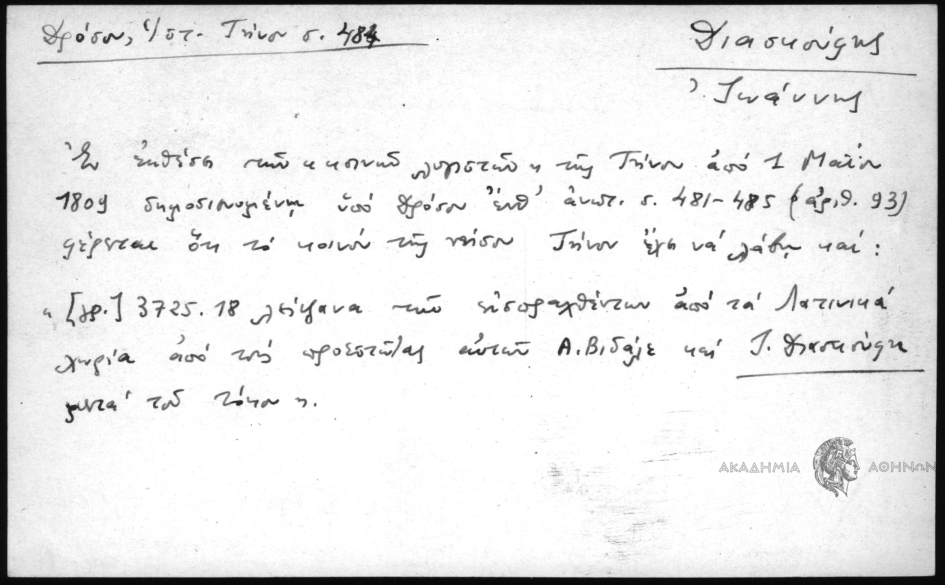 Δρόσου, Ἱστ. Τήνου σ. 484
Διασκούφης
Ἰωάννης
Ἐν ἐκθέσει τῶν « κοινῶν λογιστῶν » τῆς Τήνου ἀπό 1 Μαΐου
1809 δημοσιευομένῃ ὑπό Δρόσου ἔνθ' ἀνωτ. σ. 481-485 (ἀριθ. 93)
φέρεται ὅτι τό κοινόν τῆς νήσου Τήνου ἔχει νά λάβῃ καί:
« [γρ.] 3725.18 λείψανα τῶν εἰσπραχθέντων ἀπό τά Λατινικά
χωρία ἀπό τούς προεστῶτας αὐτῶν Α. Βιδάλε καί Ι. Διασκούφη
μετά τοῦ τόκου ».
ΑΚΑΔΗΜΙΑ ΑΘΗΝΩΝ